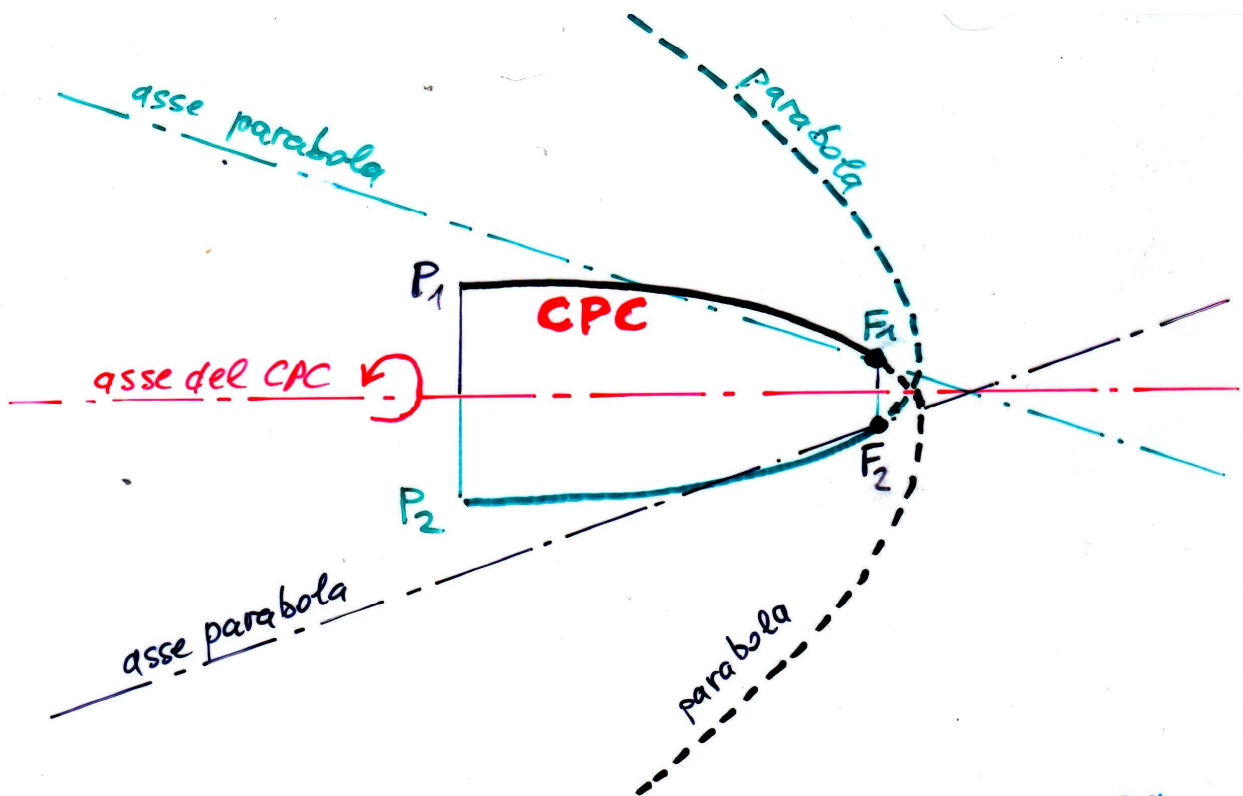 asse parabola
parabola
P1
CPC
F1
asse del CPC
F2
P2
asse parabola
parabola